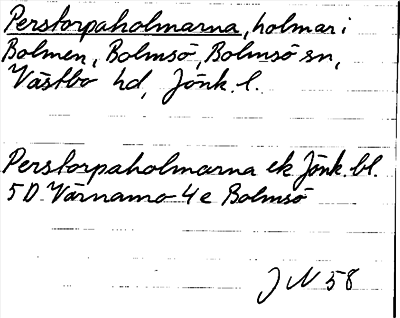 Perstorpaholmarna, holmar i
Bolmen, Bolmsö, Bolmsö sn,
Västbo hd, Jönk. l.
Perstorpaholmarna ek Jönk. bl.
5 D Värnamo 4 e Bolmsö
J N 58